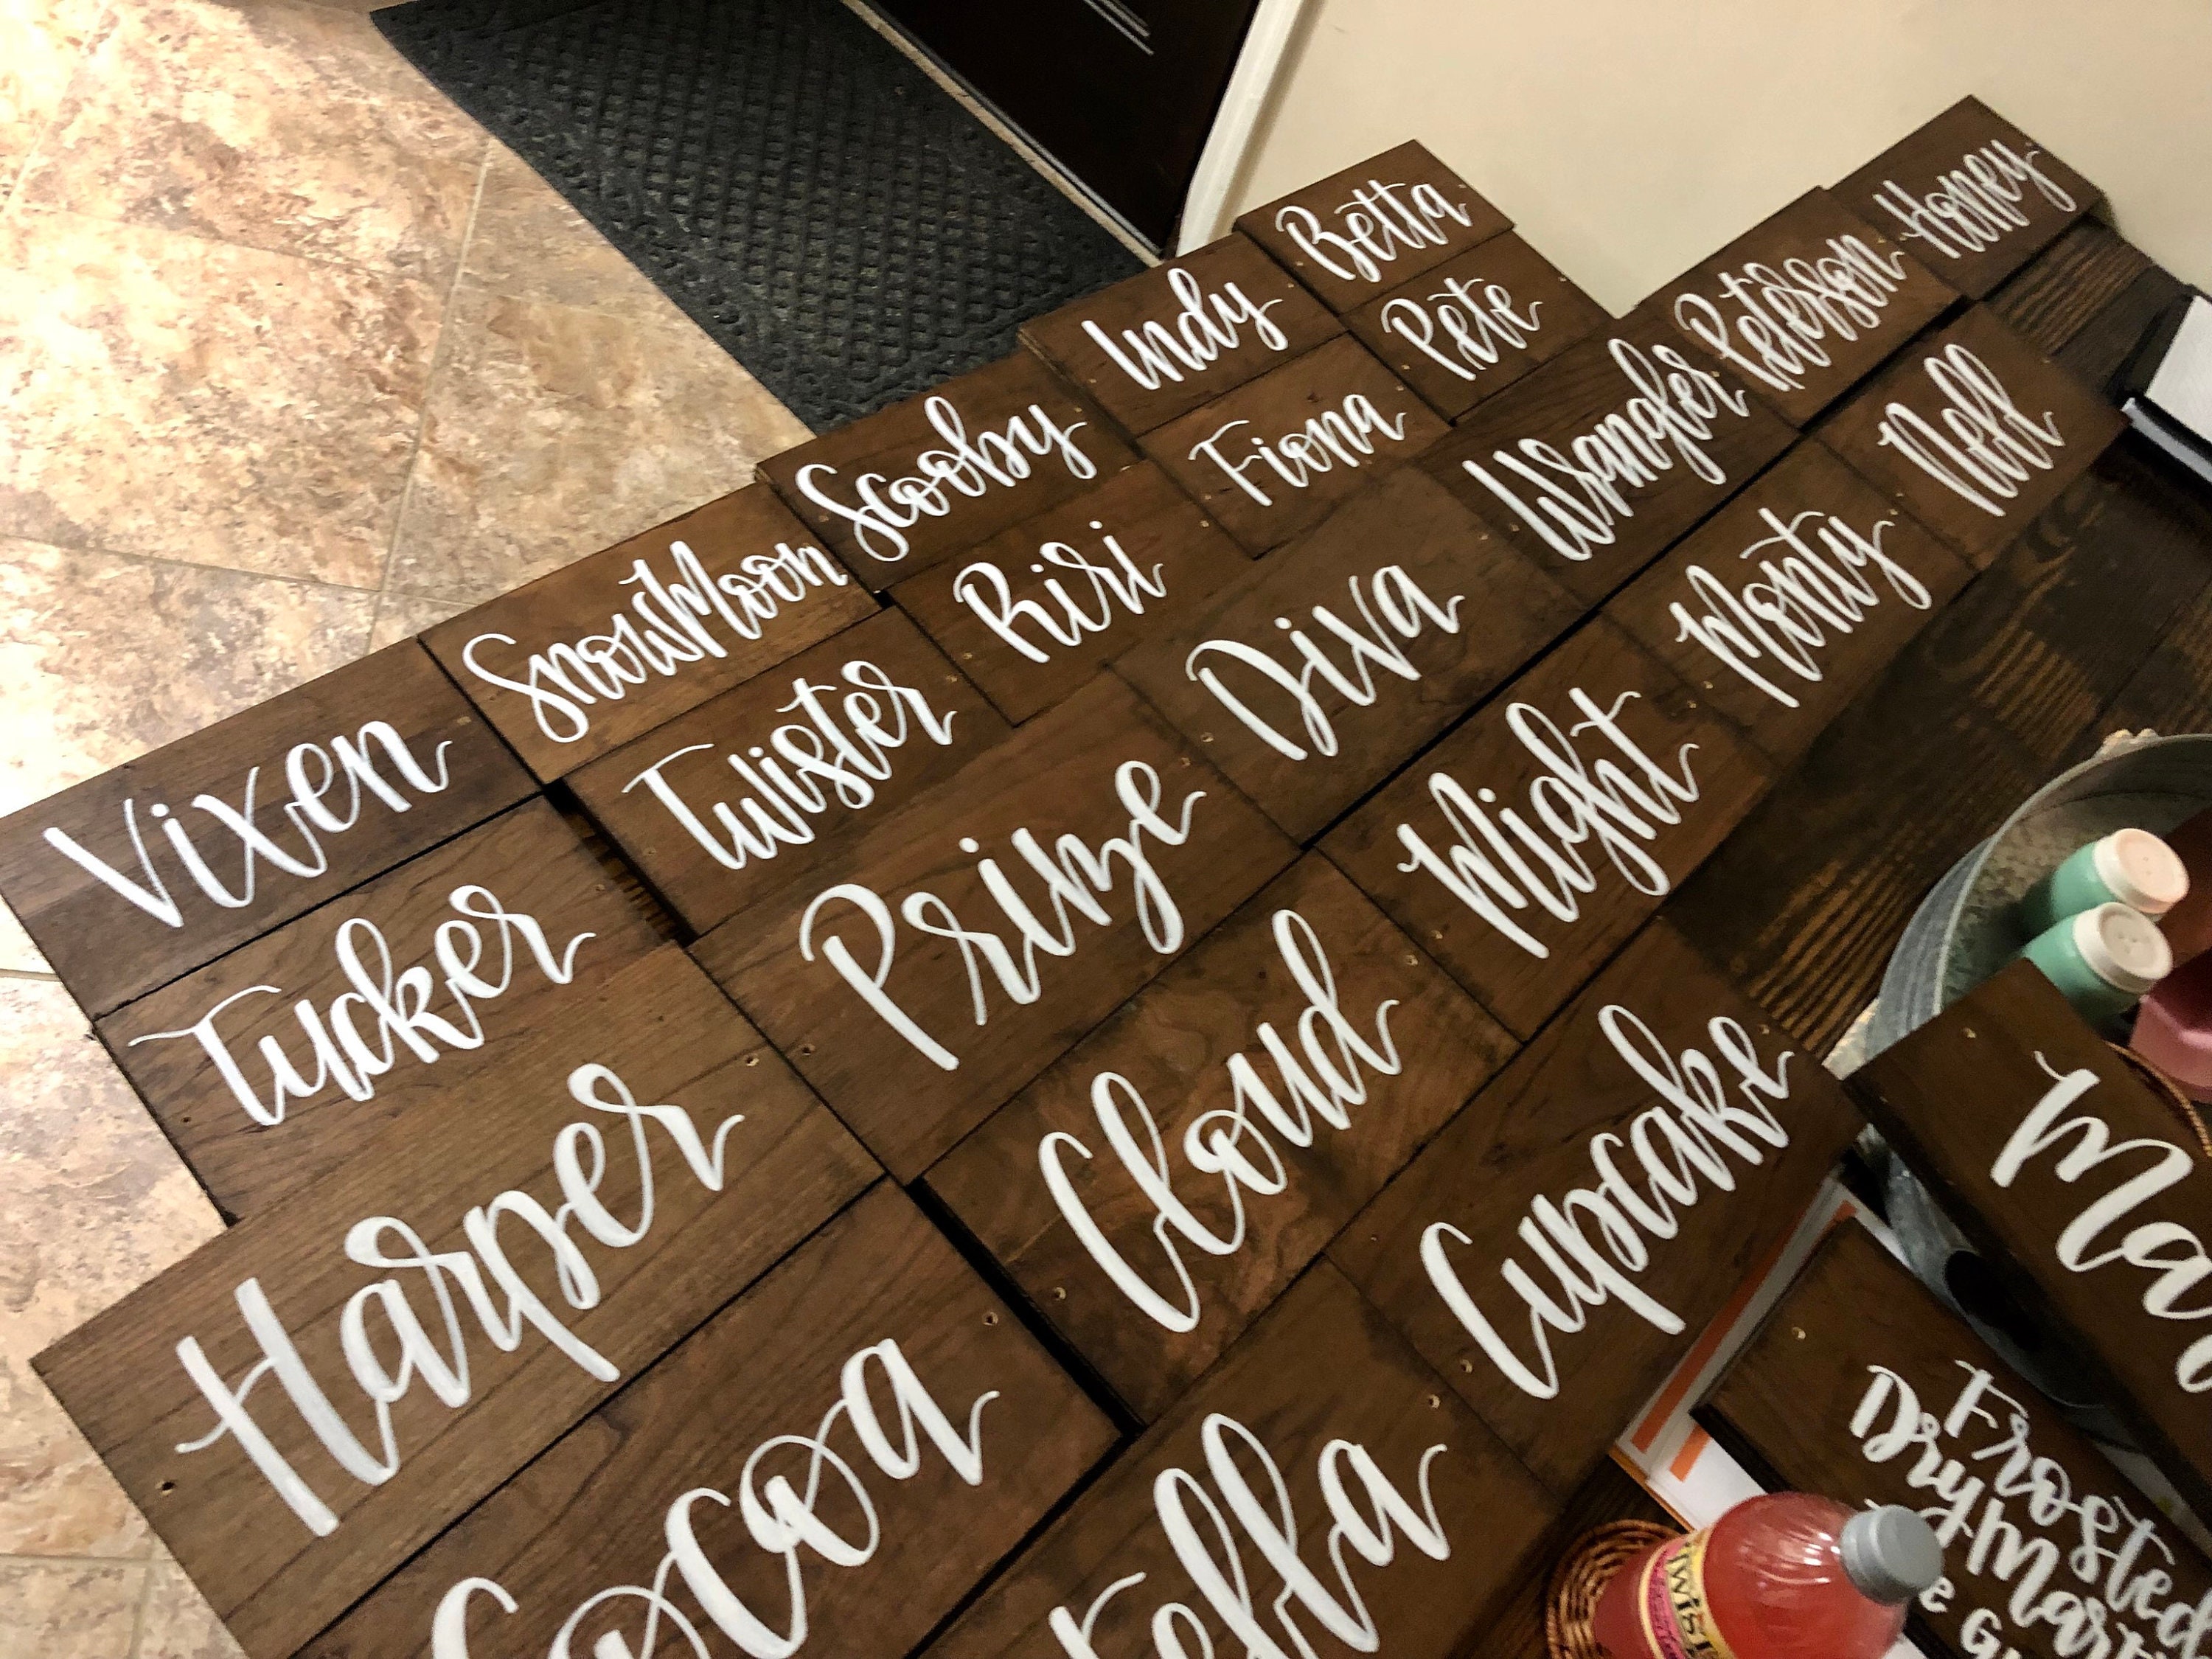 Betta
Honey
Indy
Pete
Peterson
Scooby
Fiona
Wrangler
Nell
SnowMoon
Riri
Diva
Monty
Vixen
Twister
Prinze
Might
Tucker
Cloud
Cupcake
Harper
Cocoa
Frosted